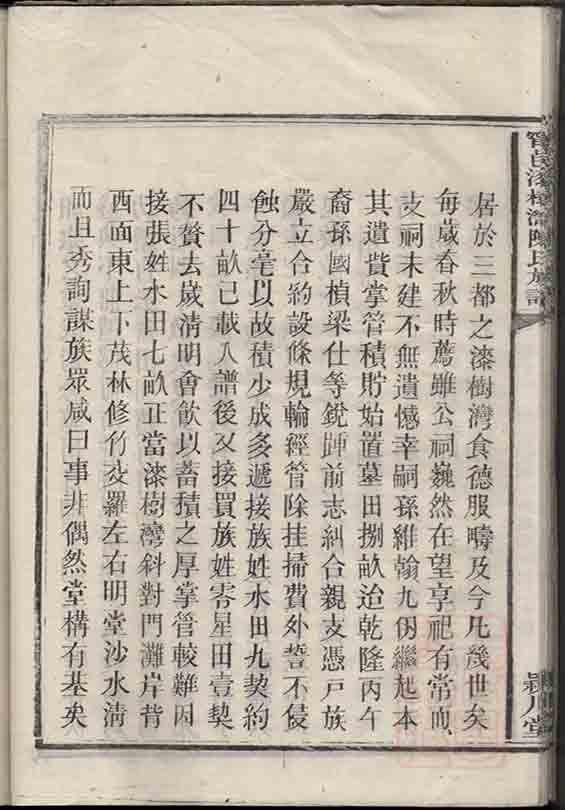 居於三都之漆樹灣食德服疇及今凡幾世矣
每歲春秋時薦雖公祠巍然在望享祀有常而
支祠未建不無遺憾幸嗣孫維翰九仞繼起本
其遺貲掌管積貯始置墓田捌畝迨乾隆丙午
裔孫國楨梁仕等銳踵前志糾合親支憑戶族
嚴立合約設條規輪經管除挂掃費外誓不侵
蝕分毫以故積少成多遞接族姓水田九契約
四十畝已載入譜後又接買族姓零星田壹契
不贅去歲清明會飲以蓄積之厚掌管較難因
接張姓水田七畝正當漆樹灣斜對門灘岸背
西面東上下茂林修竹交羅左右明堂沙水清
而且秀詢謀族眾咸曰事非偶然堂構有基矣
漆樹灣陳氏族譜
潁川堂